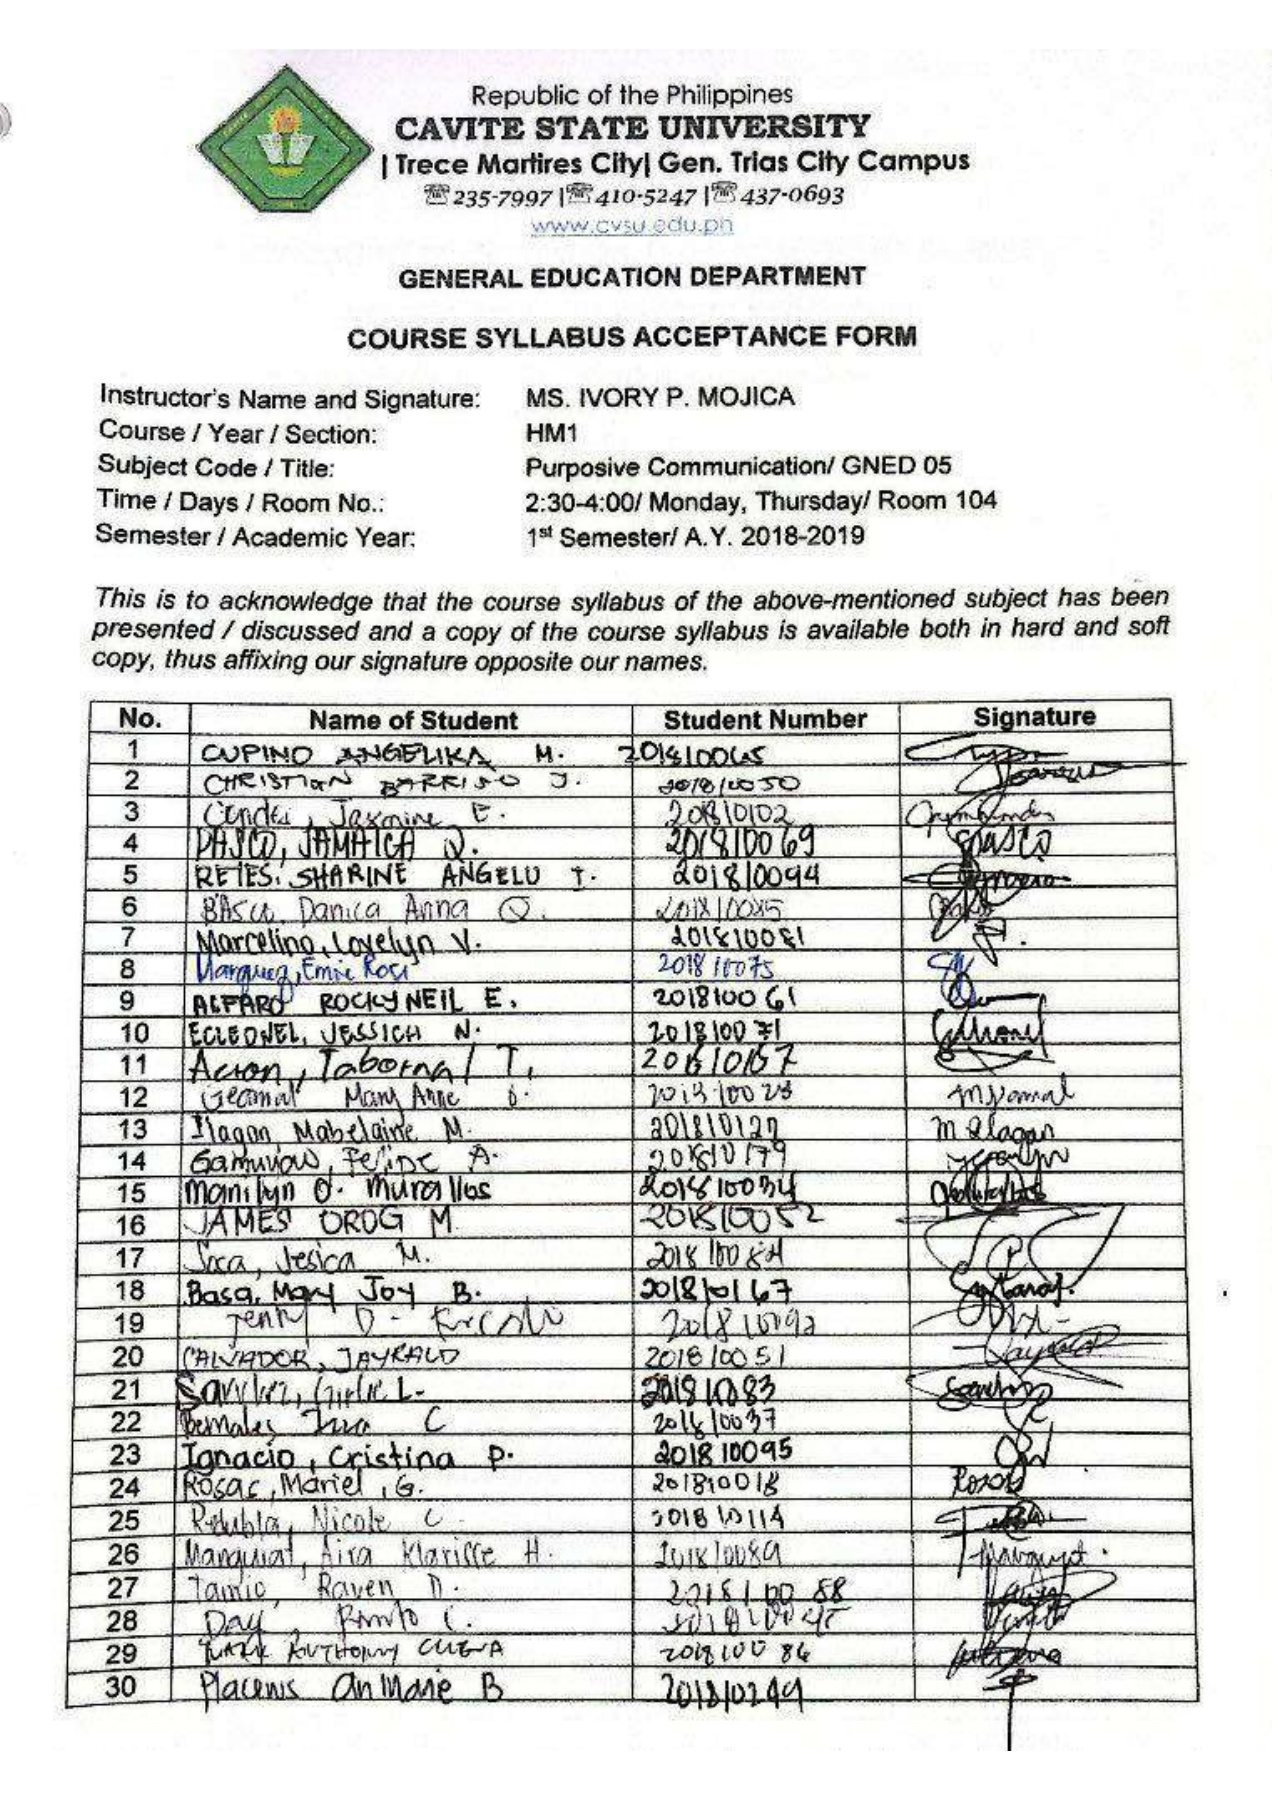 Republic of the Philippines
CAVITE STATE UNIVERSITY
| Trece Martires City| Gen. Trias City Campus
☏ 235-7997 |☏ 410-5247 |☏ 437-0693
www.cvsu.edu.ph
GENERAL EDUCATION DEPARTMENT
COURSE SYLLABUS ACCEPTANCE FORM
Instructor's Name and Signature: MS. IVORY P. MOJICA
Course / Year / Section: HM1
Subject Code / Title: Purposive Communication/ GNED 05
Time / Days / Room No.: 2:30-4:00/ Monday, Thursday/ Room 104
Semester / Academic Year: 1st Semester/ A.Y. 2018-2019
This is to acknowledge that the course syllabus of the above-mentioned subject has been
presented / discussed and a copy of the course syllabus is available both in hard and soft
copy, thus affixing our signature opposite our names.
No. Name of Student Student Number Signature
1 CUPINO ANGELIKA M. 201810065
2 CHRISTIAN BARRISO J. 201810050
3 Jasmine E. 201810102
4 PASCO, JAMAICA Q. 201810069 PASCO
5 RETES, SHARINE ANGELU T. 201810094
6 BAsco, Danica Anna Q.
7 Marcelino, Lovelyn V. 201810081
8 Marquez, Emie Rose 201810075
9 ALFARO ROCKY NEIL E. 201810061
10 JESSICA N. 201810071
11 Acion, T.
12 Geamal Mary Anne
13 Ilagan, Mabelaine M. M Ilagan
14 Felipe A. 201810179
15 Marilyn O. Murallos 201810034
16 JAMES OROG M. 201810052
17 Jesica M. 201810084
18 Basa, Mary Joy B. 201810167
19 Jenny D.
20 CALVADOR, JAYRALD 201810051
21 L. 20181083
22 Bernales C 201810037
23 Ignacio, Cristina P. 201810095
24 Rosas, Mariel, G. 201810018 Rosas
25 Redubla, Nicole C. 201810114
26 Manguiat, Aira Klarisse H. 201810089
27 Tamio, Raven D. 201810088
28 C.
29 MARK ANTHONY CUEVA 201810086
30 An Marie B 201810299